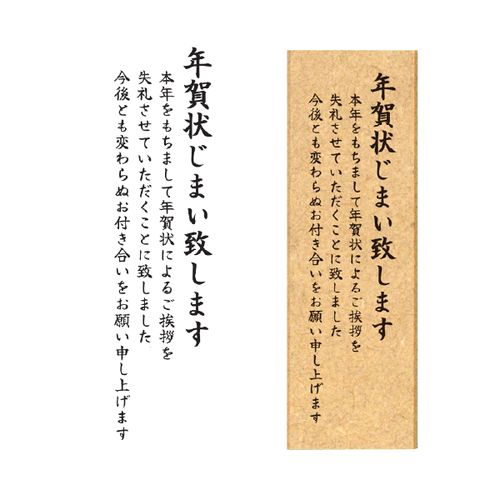 年賀状じまい致します
本年をもちまして年賀状によるご挨拶を
失札させていただくことに致しました
今後とも変わらぬお付き合いをお願い申し上げます
年賀状じまい致します
本年をもちまして年賀状によるご挨拶を
失札させていただくことに致しました
今後とも変わらぬお付き合いをお願い申し上げます